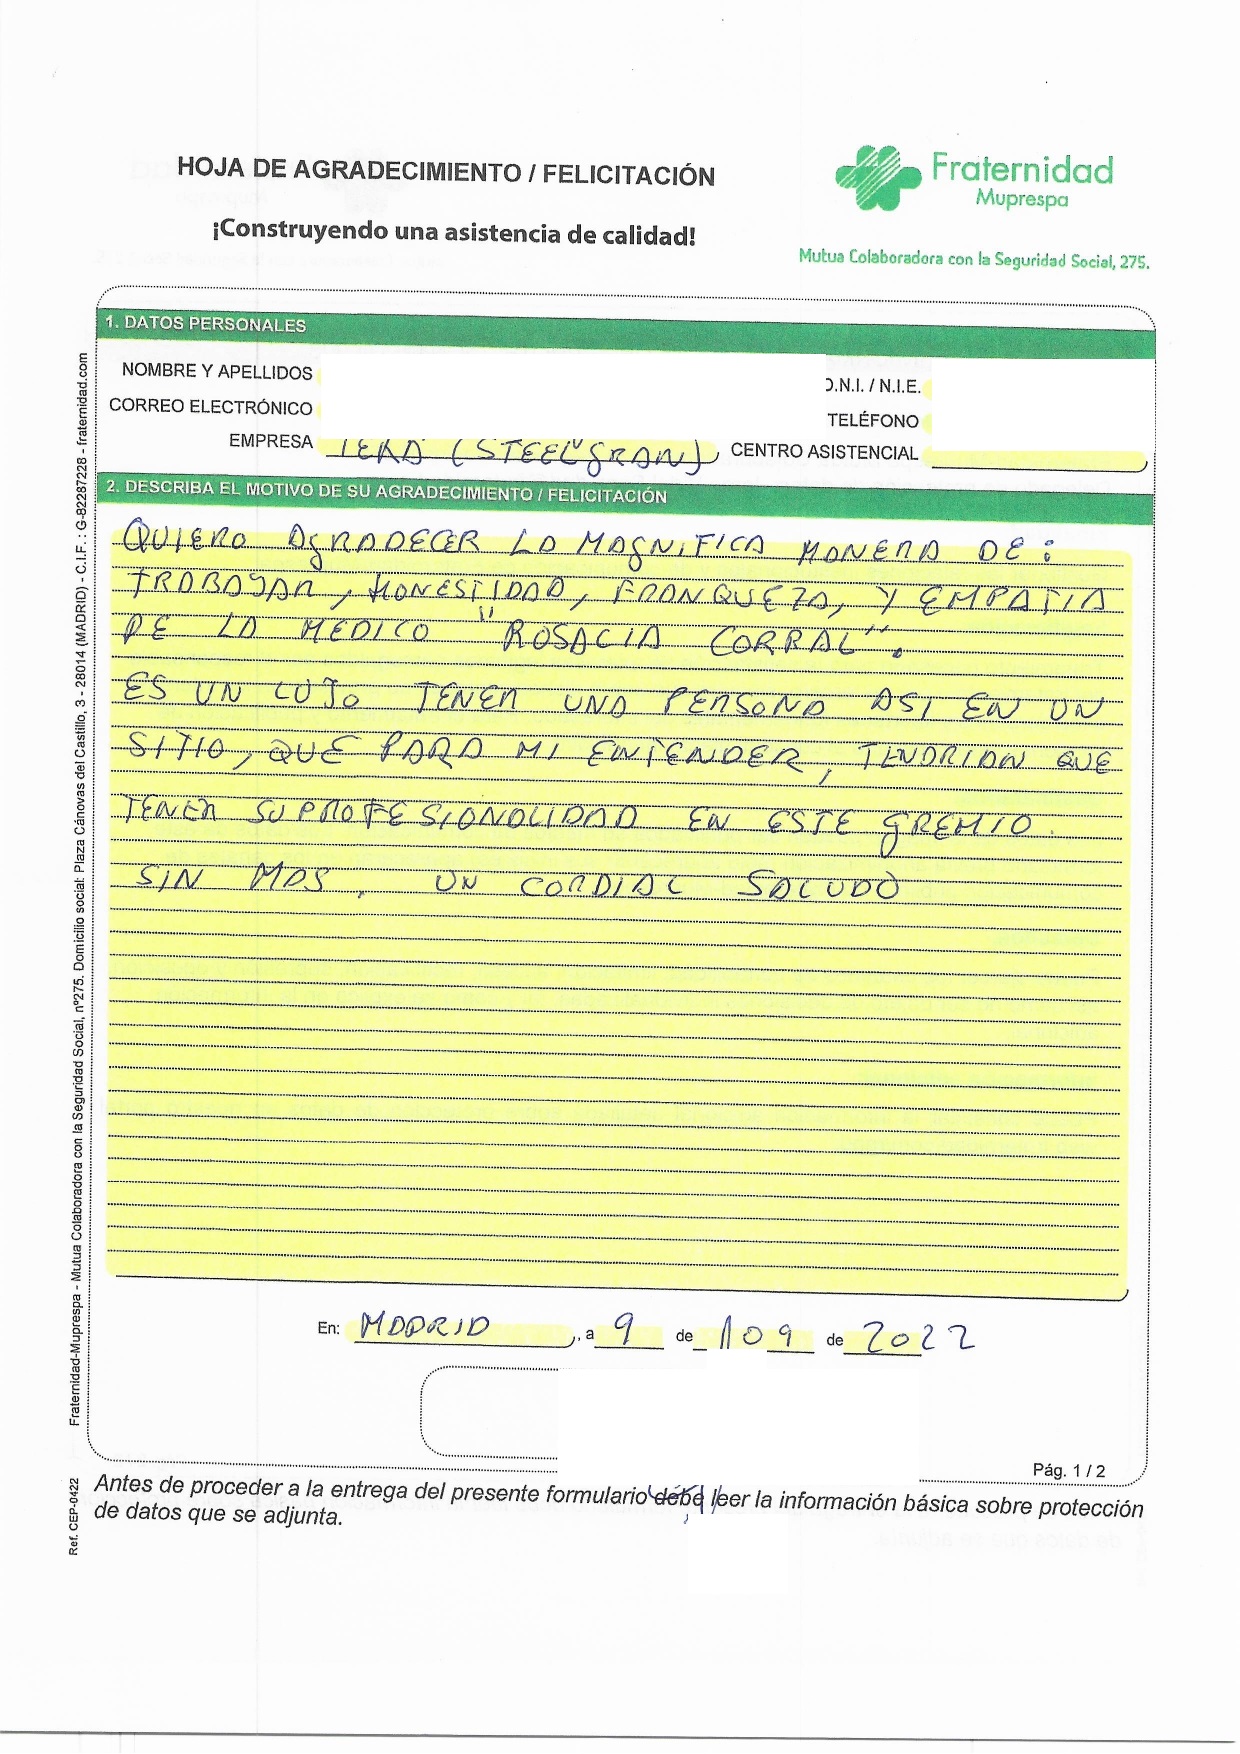 HOJA DE AGRADECIMIENTO / FELICITACIÓN
¡Construyendo una asistencia de calidad!
Fraternidad
Muprespa
Mutua Colaboradora con la Seguridad Social, 275.
1. DATOS PERSONALES
NOMBRE Y APELLIDOS
D.N.I. / N.I.E.
CORREO ELECTRÓNICO
TELÉFONO
EMPRESA (STEEL GRAN) CENTRO ASISTENCIAL
2. DESCRIBA EL MOTIVO DE SU AGRADECIMIENTO / FELICITACIÓN
QUIERO AGRADECER LA MAGNIFICA MANERA DE:
TRABAJAR, HONESTIDAD, FRANQUEZA, Y EMPATIA
DE LA MEDICO "ROSACIA CORRAL".
ES UN LUJO TENER UNA PERSONA ASI EN UN
SITIO, QUE PARA MI ENTENDER, TENDRIAN QUE
TENER SU PROFESIONALIDAD EN ESTE GREMIO.
SIN MAS, UN CORDIAL SALUDO
En: MADRID, a 9 de 109 de 2022
Pág. 1 / 2
Antes de proceder a la entrega del presente formulario debe leer la información básica sobre protección
de datos que se adjunta.
Fraternidad-Muprespa - Mutua Colaboradora con la Seguridad Social, nº275. Domicilio social: Plaza Cánovas del Castillo, 3 - 28014 (MADRID) - C.I.F. : G-82287228 - fraternidad.com
Ref. CEP-0422